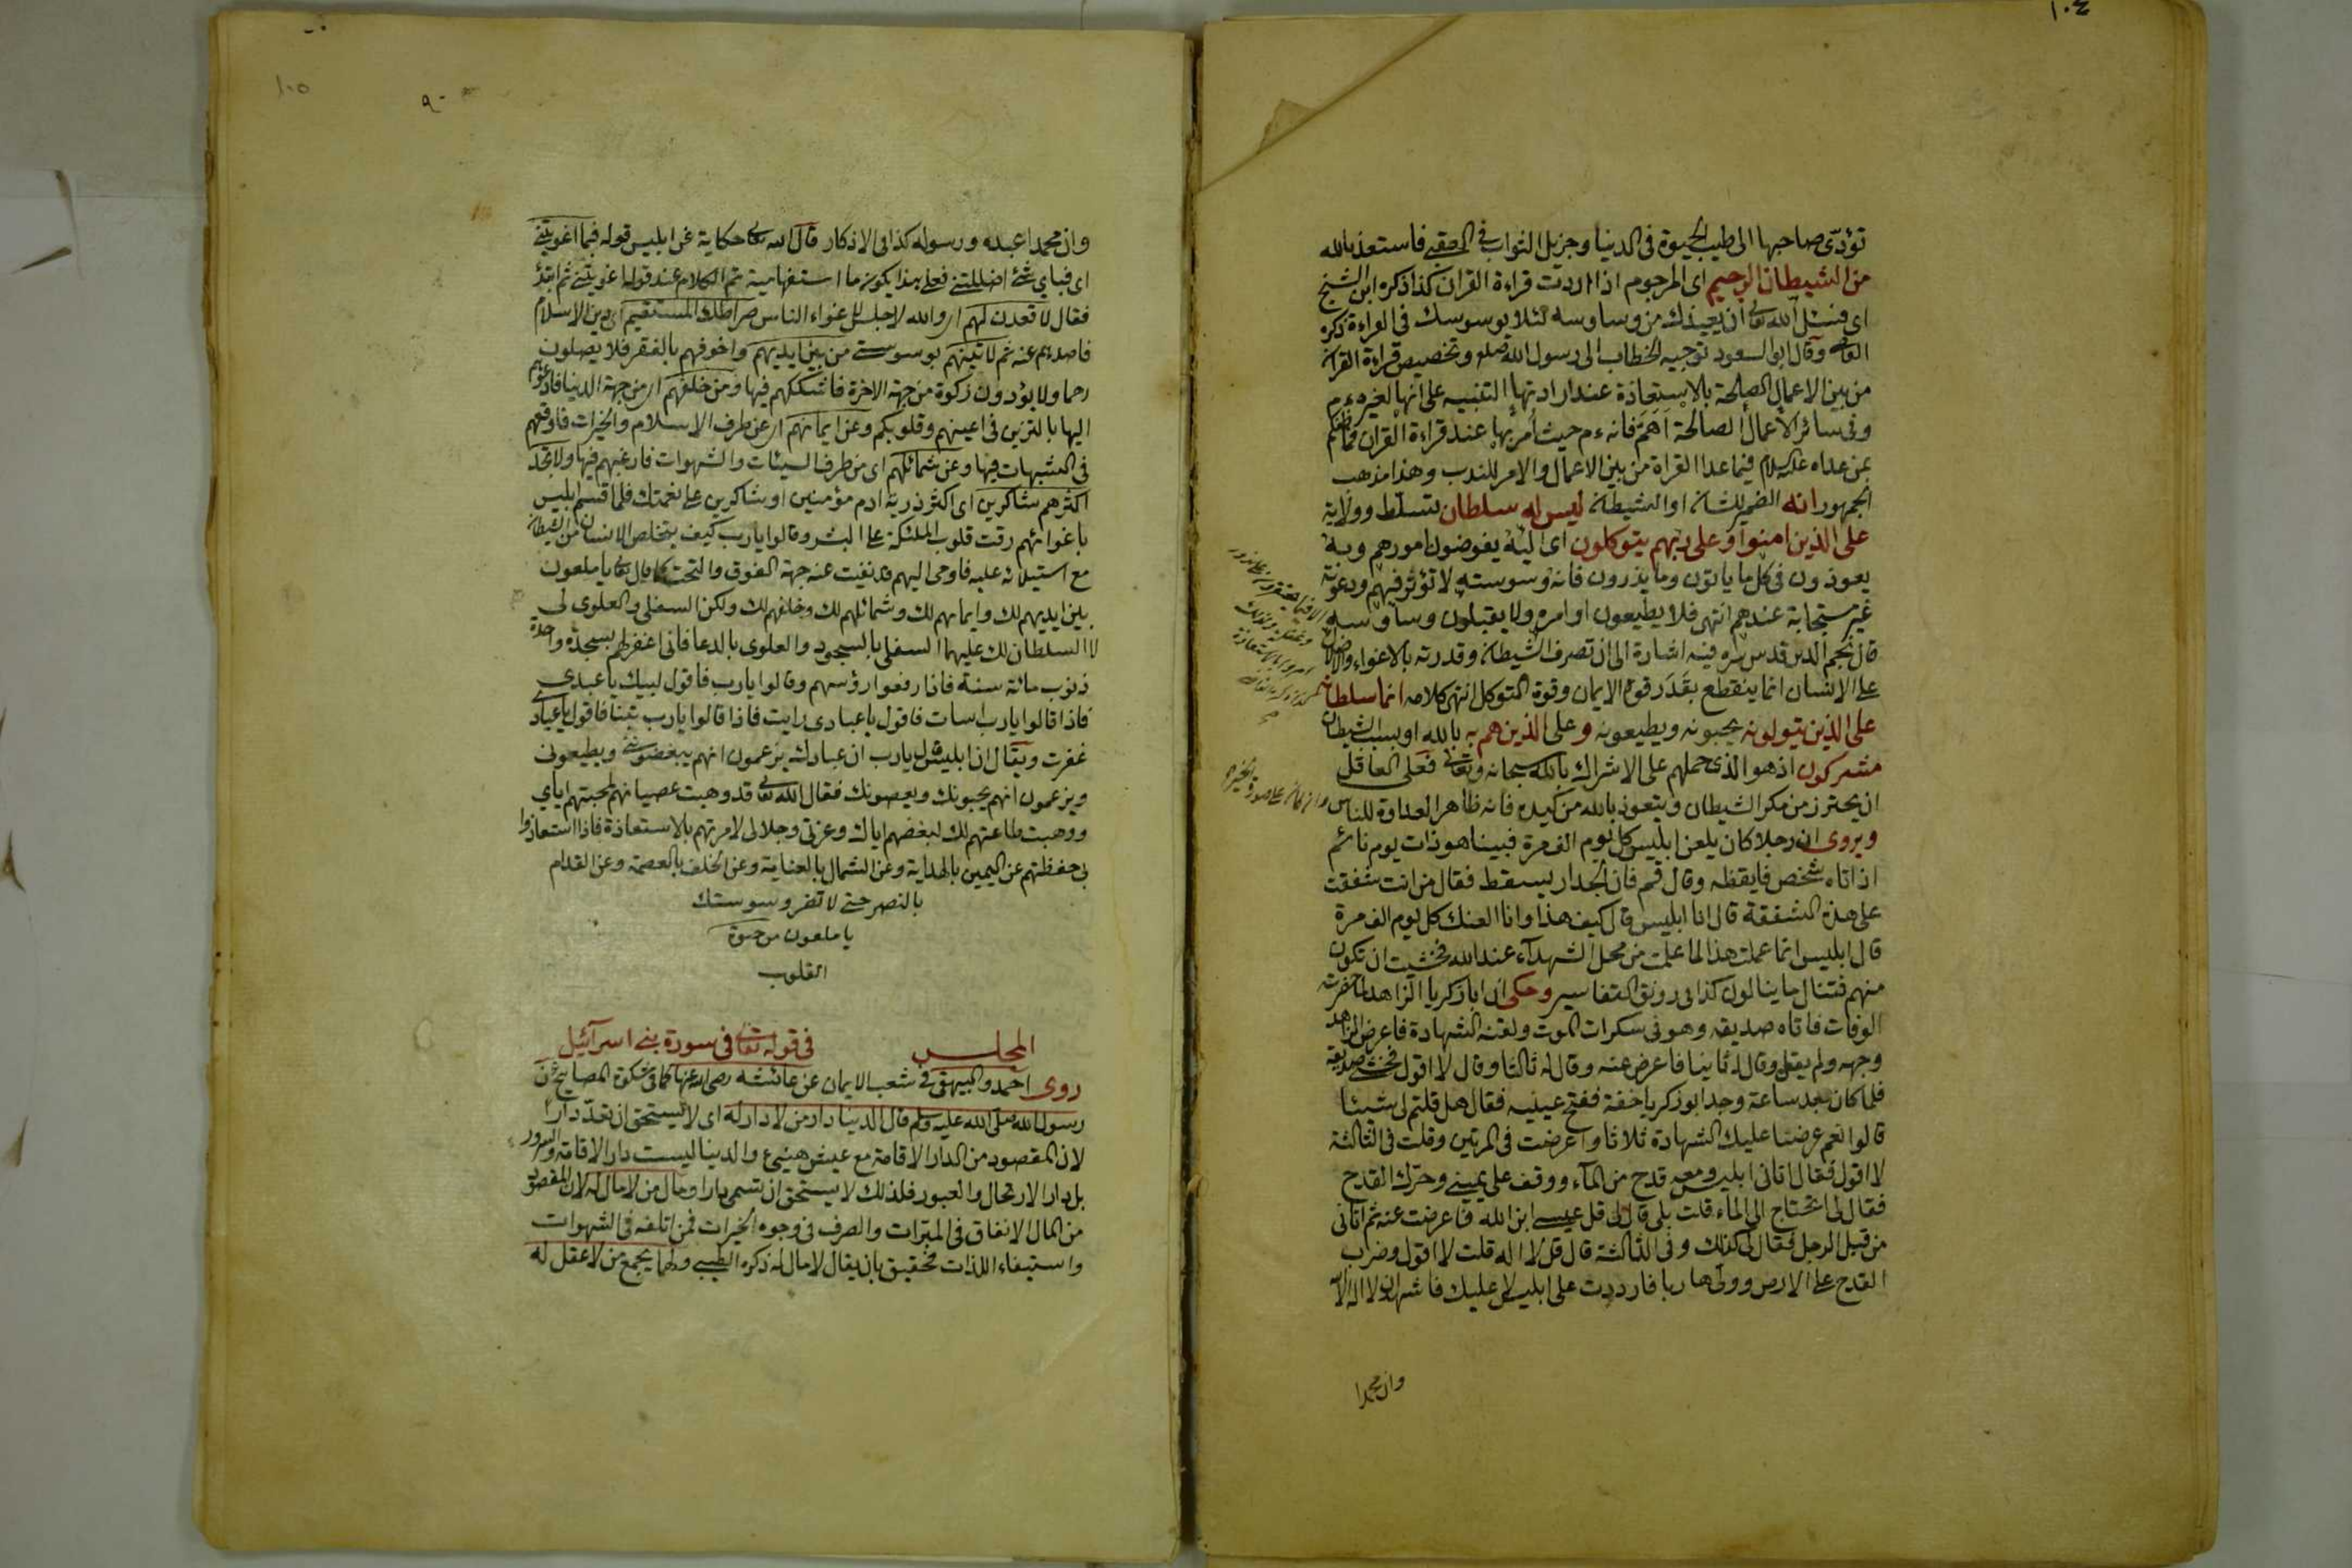 ١٠٤
تؤدى صاحبها الى طيب الحيوة فى الدنيا وجزيل الثواب فى العقبى فاستعذ بالله
من الشيطان الرجيم اى المرجوم اذا اردت قراءة القران كذا ذكره ابن الشيخ
اى فسئل الله تعالى ان يعيذك من وساوسه لئلا يوسوسك فى القراءة ذكره
القاضى وقال ابو السعود توجيه الخطاب الى رسول الله صلعم وتخصيص قراءة القران
من بين الاعمال الصالحة بالاستعاذة عند ارادتها التنبيه على انها لغيره ءم
وفى سائر الاعمال الصالحة اهم فانه ءم حيث أمر بها عند قراءة القران فما ظنكم
بمن عداه عليه السلام فيما عدا القراة من بين الاعمال والامر للندب وهذا مذهب
الجمهور انه الضمير للشان او الشيطان ليس له سلطان تسلط وولاية
على الذين امنوا وعلى ربهم يتوكلون اى اليه يفوضون امورهم وبه
يعوذون فى كل ما ياتون وما يذرون فانه وسوسته لا تؤثر فيهم ودعوته
غير مستجابة عندهم انتهى فلا يطيعون اوامره ولا يقبلون وساوسه
قال نجم الدين قدس سره فيه اشارة الى ان تصرف الشيطان وقدرته بالاغواء والاضلال
على الانسان انما ينقطع بقدر قوة الايمان وقوة التوكل انتهى كلامه انما سلطانه
على الذين يتولونه يحبونه ويطيعونه وعلى الذين هم به بالله او بسبب الشيطان
مشركون اذ هو الذى حملهم على الاشراك بالله سبحانه وتعالى فعلى العاقل
ان يحترز من مكر الشيطان ويتعوذ بالله من كيده فانه ظاهر العداوة للناس
ويروى ان رجلا كان يلعن ابليس كل يوم الف مرة فبينا هو ذات يوم نائم
اذ اتاه شخص فايقظه وقال قم فان الجدار يسقط فقال من انت شفقت
على هذه الشفقة قال انا ابليس قال كيف هذا وانا العنك كل يوم الف مرة
قال ابليس انما عملت هذا لما علمت من محل الشهدآء عند الله فخشيت ان تكون
منهم فتنال ما ينالون كذا فى رونق التفاسير وحكى ان ابا زكريا الزاهد لما حضرت
الوفات فاتاه صديقه وهو فى سكرات الموت ولقنه الشهادة فاعرض الزاهد
وجهه ولم يقل وقال له ثانيا فاعرض عنه وقال له ثالثا وقال لا اقول فخشى صديقه
فلما كان بعد ساعة وجد ابو زكريا خفة ففتح عينيه فقال هل قلتم لى شيئا
قالوا نعم عرضنا عليك الشهادة ثلاثا واعرضت فى المرتين وقلت فى الثالثة
لا اقول فقال اتانى ابليس ومعه قدح من المآء ووقف على يمينى وحرك القدح
فقال لى اتحتاج الى الماء قلت بلى قال لى قل عيسى ابن الله فاعرضت عنه ثم اتانى
من قبل الرجل فقال لى كذلك وفى الثالثة قال قل لا اله قلت لا اقول وضرب
القدح على الارض وولى هاربا فارددت على ابليس لا عليك فاشهد ان لا اله الا الله
وان محمدا
١٠٥
وان محمدا عبده ورسوله كذا فى الاذكار قال الله تعالى حكاية عن ابليس قوله فبما اغويتنى
اى فباي شئ اضللتنى فعلى هذا يكون ما استفهامية تم الكلام عند قوله اغويتنى ثم ابتدأ
فقال لاقعدن لهم اى والله لاجلس لاغواء الناس صراطك المستقيم اى دين الاسلام
فاصدهم عنه ثم لاتينهم بوسوستى من بين ايديهم واخوفهم بالفقر فلا يصلون
رحما ولا يؤدون زكوة من جهة الاخرة فاشككهم فيها ومن خلفهم اى من جهة الدنيا فادعوهم
اليها بالتزين فى اعينهم وقلوبكم وعن ايمانهم اى عن طرف الاسلام والخيرات فاوقعهم
فى الشبهات فيها وعن شمائلهم اى من طرف السيئات والشهوات فارغبهم فيها ولا تجد
اكثرهم شاكرين اى اكثر ذرية ادم مؤمنين او شاكرين على نعمتك فلما قسم ابليس
باغوائهم رقت قلوب الملئكة على البشر وقالوا يارب كيف يتخلص الانسان من الشيطان
مع استيلائه عليه فاوحى اليهم قد نفيت عنه جهة الفوق والتحت كما قال تعالى يا ملعون
بين ايديهم لك وايمانهم لك وشمائلهم لك وخلفهم لك ولكن السفلى والعلوى لى
لا السلطان لك عليهما السفلى بالسجود والعلوى بالدعا فانى اغفر لهم بسجدة واحدة
ذنوب مائة سنة فاذا رفعوا رؤسهم وقالوا يارب فاقول لبيك يا عبدى
فاذا قالوا يارب اسات فاقول يا عبادى رايت فاذا قالوا يارب تبنا فاقول يا عبادى
غفرت ويقال ان ابليس قال يارب ان عبادك يزعمون انهم يبغضوننى ويطيعونى
ويزعمون انهم يحبونك ويعصونك فقال الله تعالى قد وهبت عصيانهم لمحبتهم اياي
ووهبت طاعتهم لك لبغضهم اياك وعزتى وجلالى لامرتهم بالاستعاذة فاذا استعاذوا
بى حفظتهم عن اليمين بالهداية وعن الشمال بالعناية وعن الخلف بالعصمة وعن القدام
بالنصر حتى لا تضر وسوستك
يا ملعون من
القلوب
المجلس فى قوله تعالى فى سورة بنى اسرآئيل
روى احمد والبيهقى فى شعب الايمان عن عائشة رضى الله عنها كما فى مشكوة المصابيح ان
رسول الله صلى الله عليه وسلم قال الدنيا دار من لا دار له اى لا يستحق ان تعد دارا
لان المقصود من الدار الاقامة مع عيش هنيئ والدنيا ليست دار الاقامة والسرور
بل دار الارتحال والعبور فلذلك لا يستحق ان تسمى دارا ومال من لا مال له لان المقصود
من المال الانفاق فى المبرات والصرف فى وجوه الخيرات فمن اتلفه فى الشهوات
واستيفاء اللذات فحقيق بان يقال لا مال له ذكره الطيبى ولها يجمع من لا عقل له